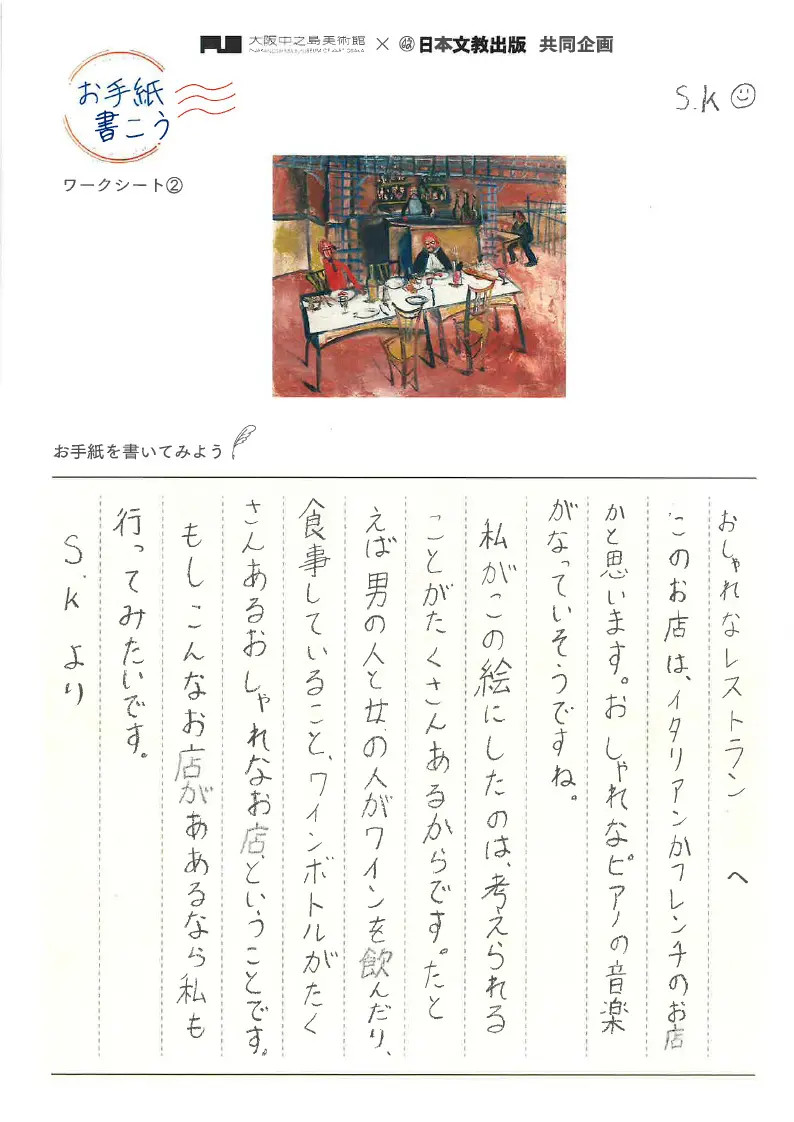 大阪中之島美術館 × 日本文教出版 共同企画
NAKANOSHIMA MUSEUM OF ART, OSAKA
お手紙
書こう
S.K
ワークシート②
お手紙を書いてみよう
おしゃれなレストラン へ
このお店は、イタリアンかフレンチのお店
かと思います。おしゃれなピアノの音楽
がなっていそうですね。
私がこの絵にしたのは、考えられる
ことがたくさんあるからです。たと
えば男の人と女の人がワインを飲んだり、
食事していること、ワインボトルがたく
さんあるおしゃれなお店、ということです。
もしこんなお店がああるなら私も
行ってみたいです。
S.K より